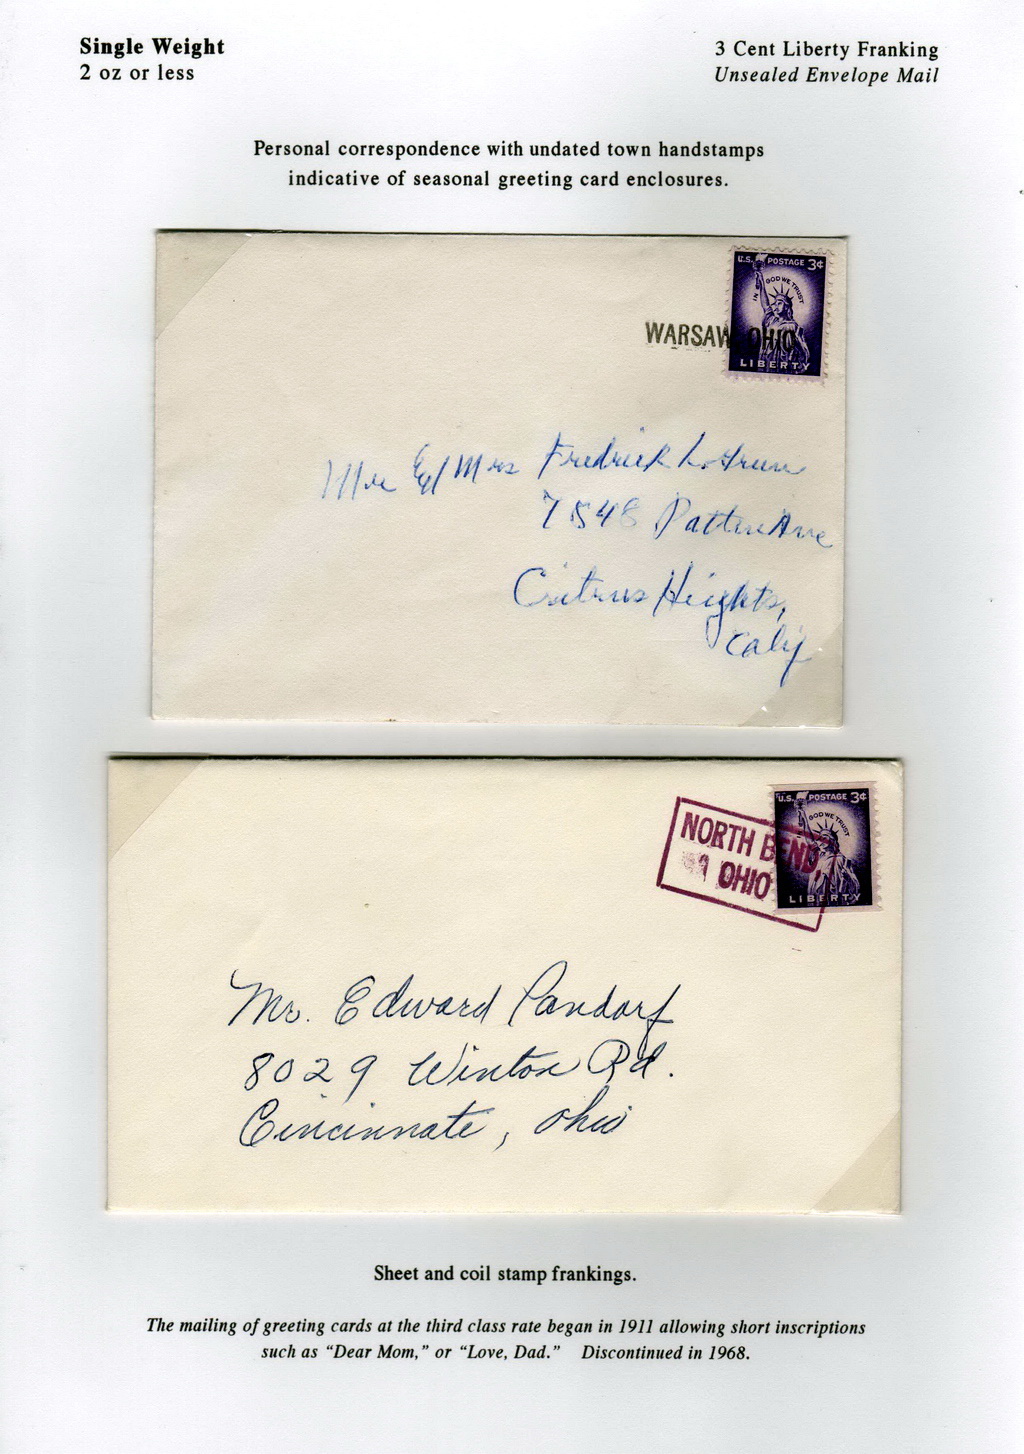 Single Weight
2 oz or less
3 Cent Liberty Franking
Unsealed Envelope Mail
Personal correspondence with undated town handstamps
indicative of seasonal greeting card enclosures.
U.S. POSTAGE 3¢
IN GOD WE TRUST
LIBERTY
WARSAW, OHIO
Mr & Mrs Fredrick
7548 Patten Ave
Citrus Heights,
Calif
U.S. POSTAGE 3¢
IN GOD WE TRUST
LIBERTY
NORTH BEND,
OHIO
Mr. Edward Pandorf
8029 Winton Rd.
Cincinnate, Ohio
Sheet and coil stamp frankings.
The mailing of greeting cards at the third class rate began in 1911 allowing short inscriptions
such as “Dear Mom,” or “Love, Dad.” Discontinued in 1968.